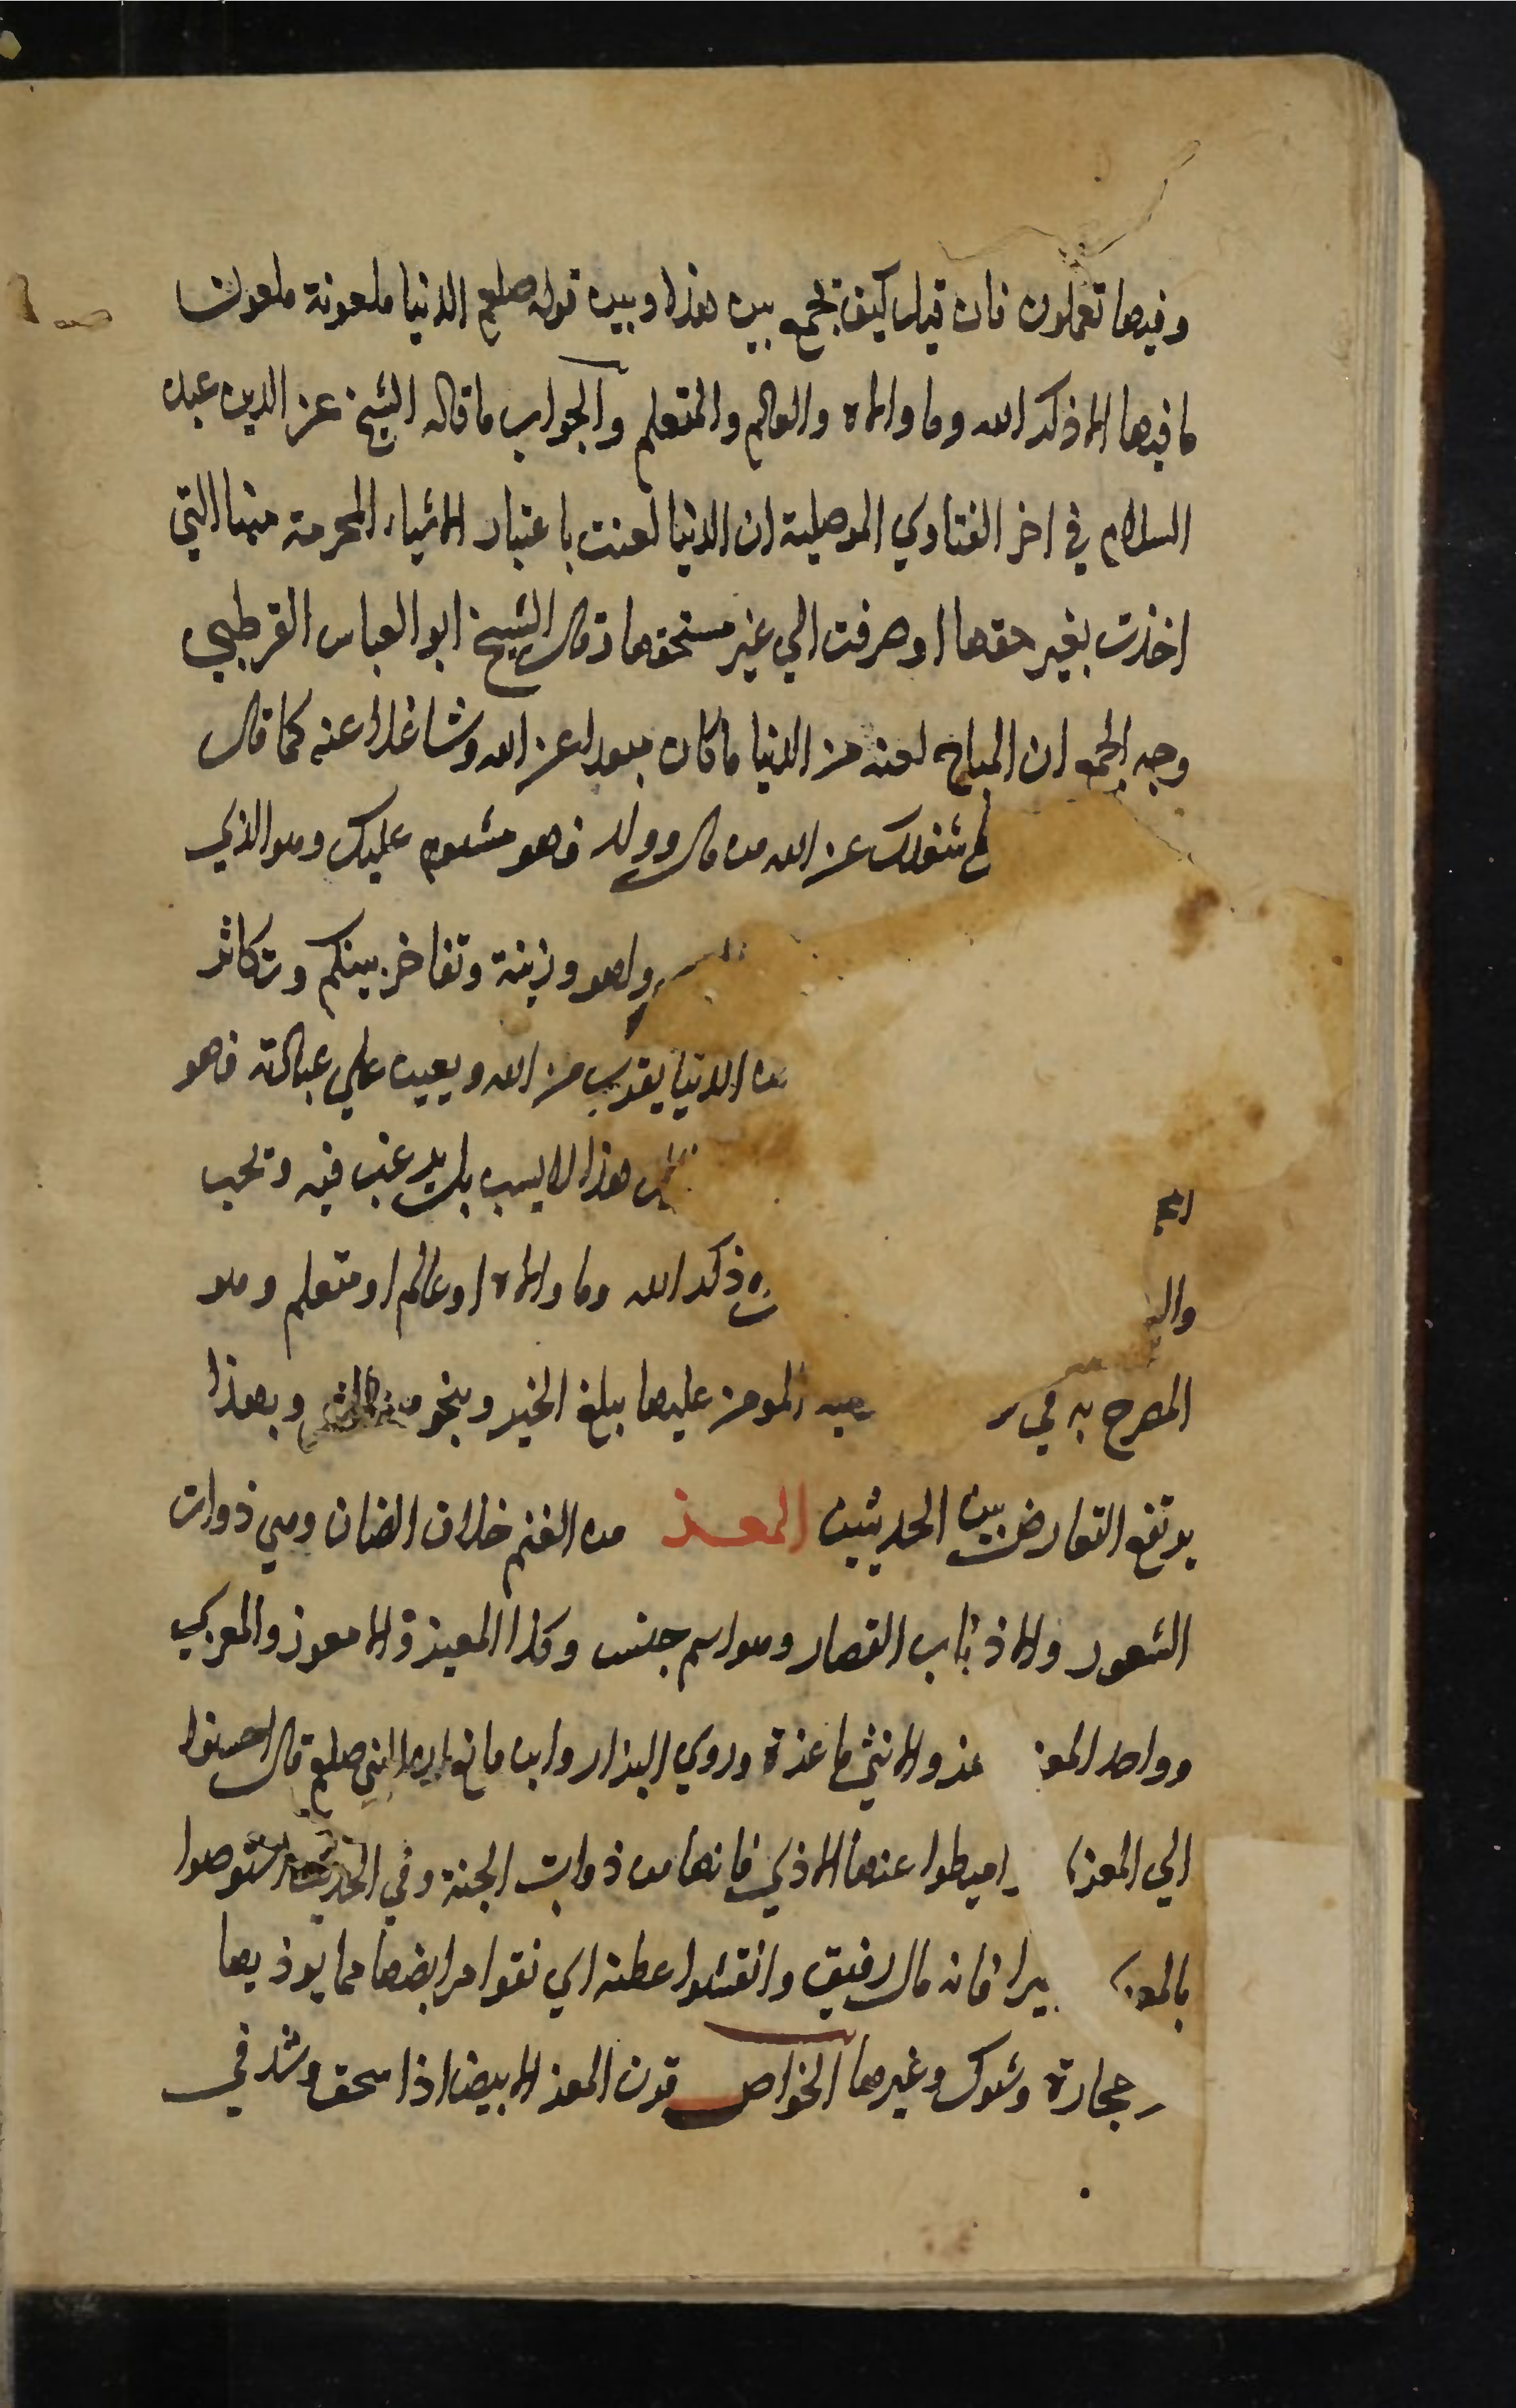 وفيها تعملون فان قيل كيف نجمع بين هذا وبين قوله صلعم الدنيا ملعونة ملعون
ما فيها الا ذكر الله وما والاه والعالم والمتعلم والجواب ما قاله الشيخ عز الدين عبد
السلام في اخر الفتاوي الموصلية ان الدنيا لعنت باعتبار الاشياء المحرمة منها التي
اخذت بغير حقها او صرفت الي غير مستحقها وقال الشيخ ابو العباس القرطبي
وجه الجمع ان المباح لعنه من الدنيا ما كان مبعدا عن الله وشاغلا عنه كما قال
شغلك عن الله من مال وولد فهو مشئوم عليك وهو الذي
ولهو وزينة وتفاخر بينكم وتكاثر
الدنيا يقرب من الله ويعين علي عبادته فهو
هذا لا يسب بل يرغب فيه ويحب
ذكر الله وما والاه او عالم او متعلم وهو
المصرح به في المومن عليها يبلغ الخير وينجو وبهذا
يرتفع التعارض بين الحديثين المعز من الغنم خلاف الضان وهي ذوات
الشعور والاذناب القصار وهو اسم جنس وكذا المعيز والامعوز والمعزي
وواحد المعز والانثي ماعزة وروي البزار وابن مانع ان النبي صلعم قال احسنوا
الي المعز اميطوا عنها الاذي فانها من ذوات الجنة وفي الحديث استوصوا
يرا فانه مال رفيق وانقشوا عطنه اي نقوا مرابضها مما يوذيها
حجارة وشوك وغيرها الخواص قرن المعز الابيض اذا سحق وشد في